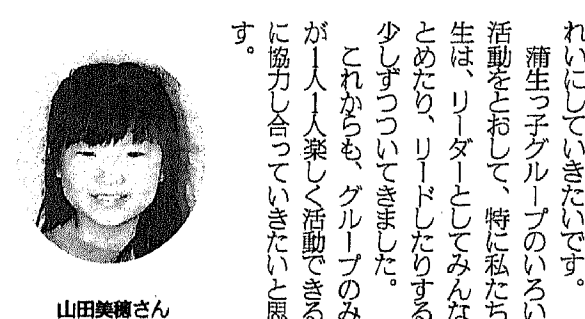 れいにしていきたいです。
蒲生っ子グループのいろい
活動をとおして、特に私たち
生は、リーダーとしてみんな
とめたり、リードしたりする
少しずつついてきました。
これからも、グループのみ
が1人1人楽しく活動できる
に協力し合っていきたいと思
す。
山田美穂さん